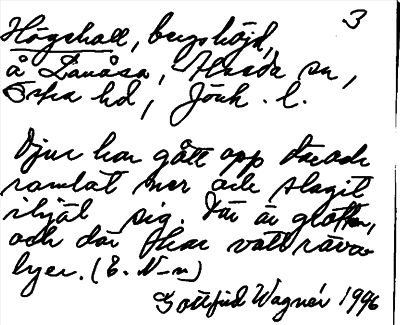 3
Högshall, bergshöjd,
å Lanåsa, Habda sn,
Östra hd, Jönk. l.
Djur har gått opp där och
ramlat ner och slagit
ihjäl sig. Där är glottor,
och där har vatt räva-
lyer. (E. N-n)
Gottfrid Wagnér 1996